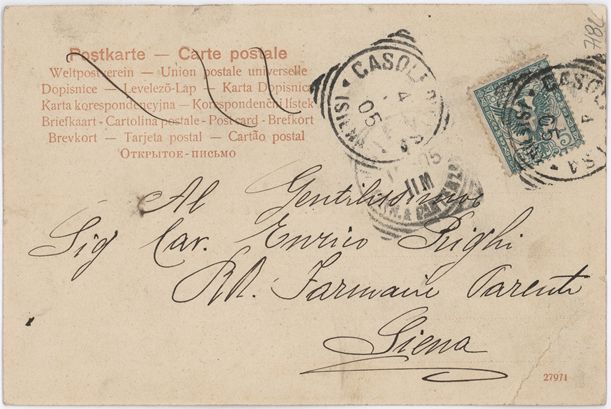 7182
Postkarte — Carte postale
Weltpostverein — Union postale universelle
Dopisnice — Levelező-Lap — Karta Dopisnici
Karta korespondencyjna — Korespondenční lístek
Briefkaart - Cartolina postale - Post card - Brefkort
Brevkort — Tarjeta postal — Cartão postal
Открытое-письмо
CASOLE
(SIENA)
05
5
CASOL
05
Al Gentilissimo
Sig Cav. Enrico Righi
RR. Farmacie Parenti
Siena
27971